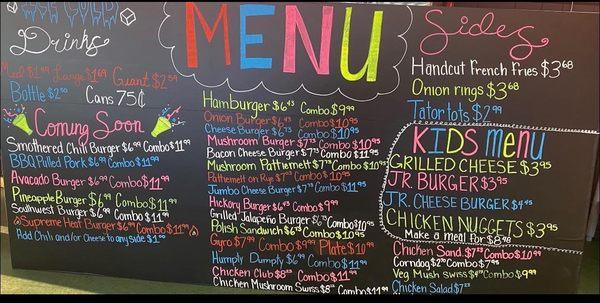 ICE COLD
Drinks
Med $1.49 Large $1.69 Giant $2.59
Bottle $2.50 Cans 75¢
Coming Soon
Smothered Chili Burger $6.99 Combo $11.99
BBQ Pulled Pork $6.99 Combo $11.99
Avacado Burger $6.99 Combo $11.99
Pineapple Burger $6.99 Combo $11.99
Southwest Burger $6.99 Combo $11.99
Supreme Heat Burger $6.99 Combo $11.99
Add Chili and/or Cheese to any side $1.00
MENU
Hamburger $6.43 Combo $9.99
Onion Burger $6.43 Combo $10.95
Cheese Burger $6.73 Combo $10.95
Mushroom Burger $7.13 Combo $10.95
Bacon Cheese Burger $7.73 Combo $11.95
Mushroom Pattiemelt $7.73 Combo $10.95
Pattiemelt on Rye $7.23 Combo $10.95
Jumbo Cheese Burger $7.73 Combo $11.95
Hickory Burger $6.43 Combo $9.99
Grilled Jalapeño Burger $6.73 Combo $10.95
Polish Sandwich $6.73 Combo $10.95
Gyro $7.99 Combo $9.99 Plate $10.99
Humply Dumply $6.99 Combo $11.99
Chicken Club $8.23 Combo $11.99
Chicken Mushroom Swiss $8.24 Combo $11.99
Sides
Handcut French Fries $3.68
Onion rings $3.68
Tator tots $2.99
KIDS MENU
GRILLED CHEESE $3.95
JR. BURGER $3.95
JR. CHEESE BURGER $4.45
CHICKEN NUGGETS $3.95
Make a meal for $8.48
Chicken Sand. $7.23 Combo $10.99
Corndog $2.50 Combo $7.95
Veg Mush Swiss $4.29 Combo $9.99
Chicken Salad $7.23